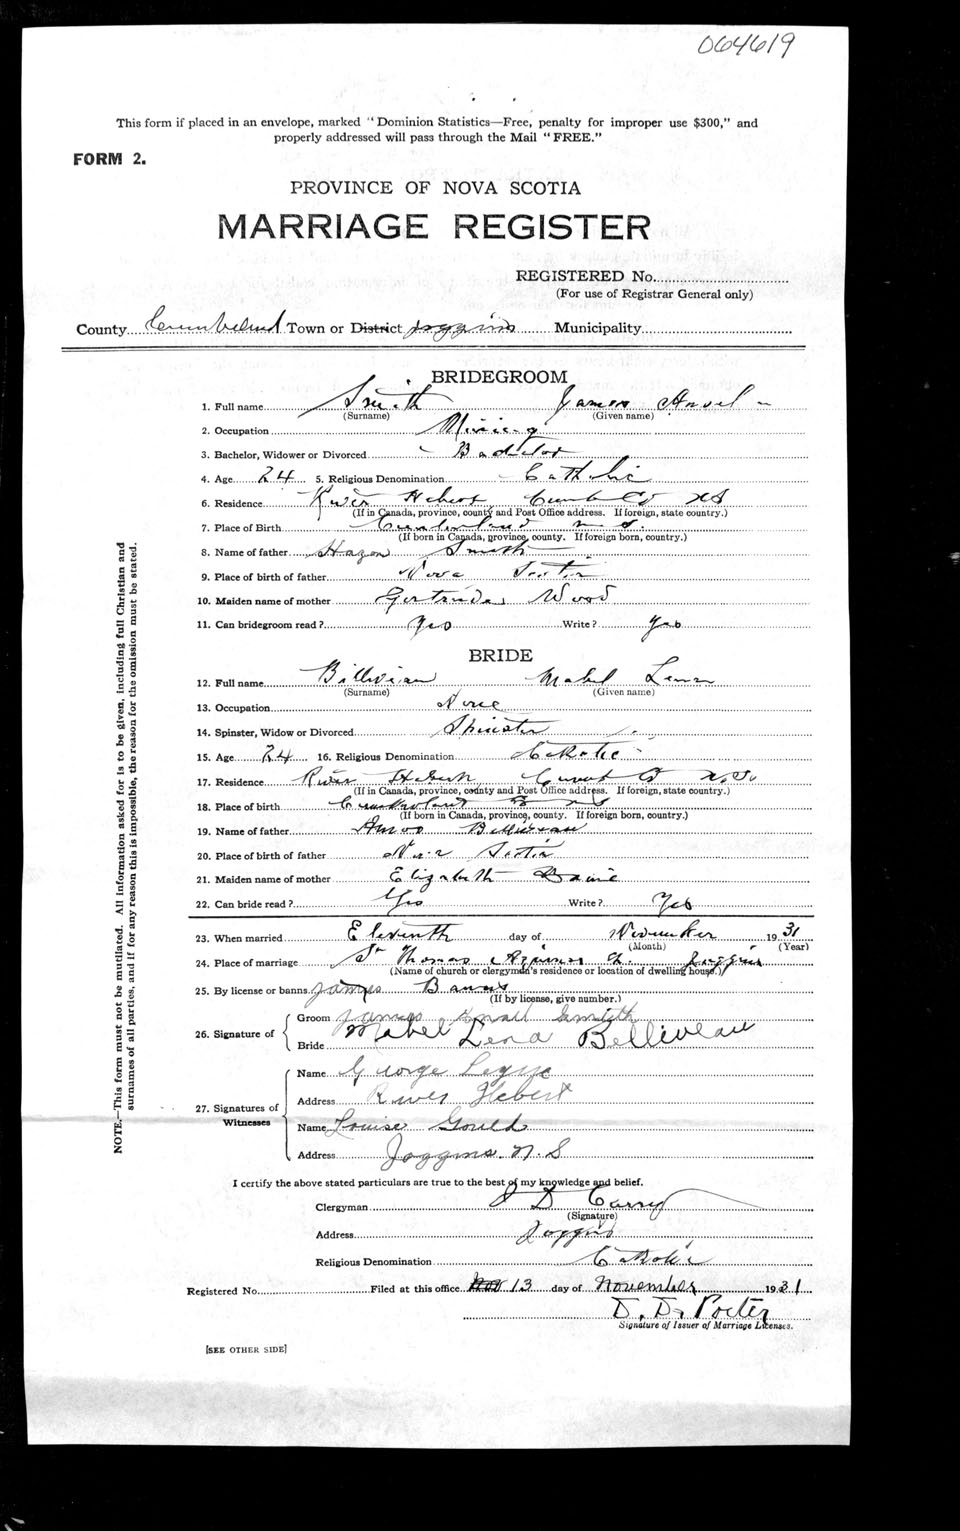 064619
This form if placed in an envelope, marked "Dominion Statistics—Free, penalty for improper use $300," and
properly addressed will pass through the Mail "FREE."
FORM 2.
PROVINCE OF NOVA SCOTIA
MARRIAGE REGISTER
REGISTERED No.
(For use of Registrar General only)
County Cumberland Town or District Joggins Municipality
BRIDEGROOM
1. Full name Smith James
(Surname) (Given name)
2. Occupation Mining
3. Bachelor, Widower or Divorced Bachelor
4. Age 24 5. Religious Denomination Catholic
6. Residence River Hebert Cumb Co NS
(If in Canada, province, county and Post Office address. If foreign, state country.)
7. Place of Birth Cumberland N S.
(If born in Canada, province, county. If foreign born, country.)
8. Name of father Hazen Smith
9. Place of birth of father Nova Scotia
10. Maiden name of mother Gertrude Wood
11. Can bridegroom read? Yes Write? Yes
BRIDE
12. Full name Mabel Lena
(Surname) (Given name)
13. Occupation None
14. Spinster, Widow or Divorced Spinster
15. Age 24 16. Religious Denomination Catholic
17. Residence River Hebert Cumb Co N.S.
(If in Canada, province, county and Post Office address. If foreign, state country.)
18. Place of birth Cumberland Co NS
(If born in Canada, province, county. If foreign born, country.)
19. Name of father Amos Belliveau
20. Place of birth of father Nova Scotia
21. Maiden name of mother Elizabeth
22. Can bride read? Yes Write? Yes
23. When married Eleventh day of November 1931
(Month) (Year)
24. Place of marriage St Thomas Aquinas Ch. Joggins
(Name of church or clergyman's residence or location of dwelling house.)
25. By license or banns Banns
(If by license, give number.)
26. Signature of
Groom James Smith
Bride Mabel Lena Belliveau
27. Signatures of Witnesses
Name George
Address River Hebert
Name Louise Gould
Address Joggins. N. S
I certify the above stated particulars are true to the best of my knowledge and belief.
Clergyman D Carry
(Signature)
Address Joggins
Religious Denomination Catholic
Registered No. Filed at this office Nov 13 day of November 1931
D. D. Porter
Signature of Issuer of Marriage Licenses.
[SEE OTHER SIDE]
NOTE.—This form must not be mutilated. All information asked for is to be given, including full Christian and
surnames of all parties, and if for any reason this is impossible, the reason for the omission must be stated.